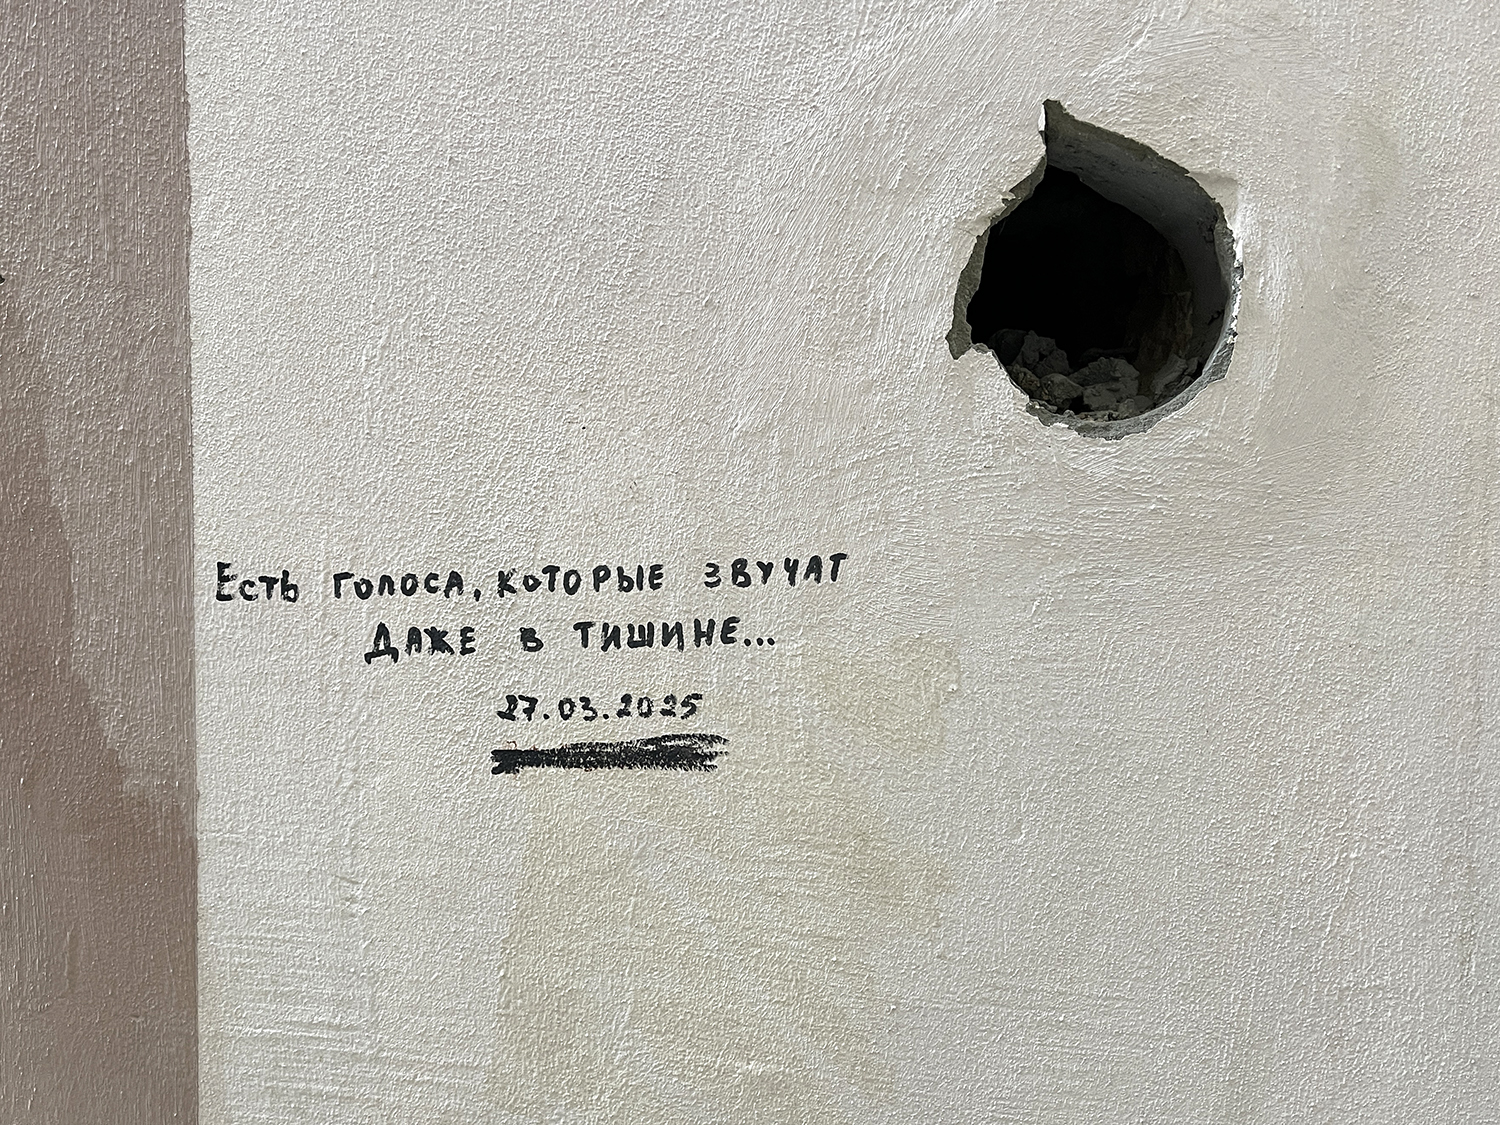 Есть голоса, которые звучат
даже в тишине...
27.03.2025